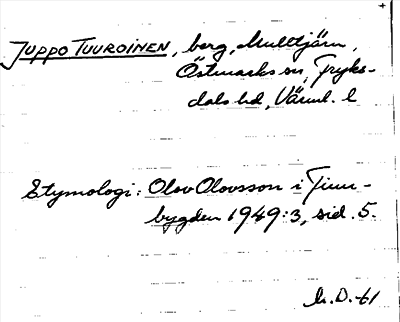 JUPPO TUUROINEN, berg, Mulltjärn,
Östmarks sn, Fryks-
dals hd, Värml. l
Etymologi: Olov Olovsson i Finn-
bygden 1949:3, sid. 5.
h.D.-61